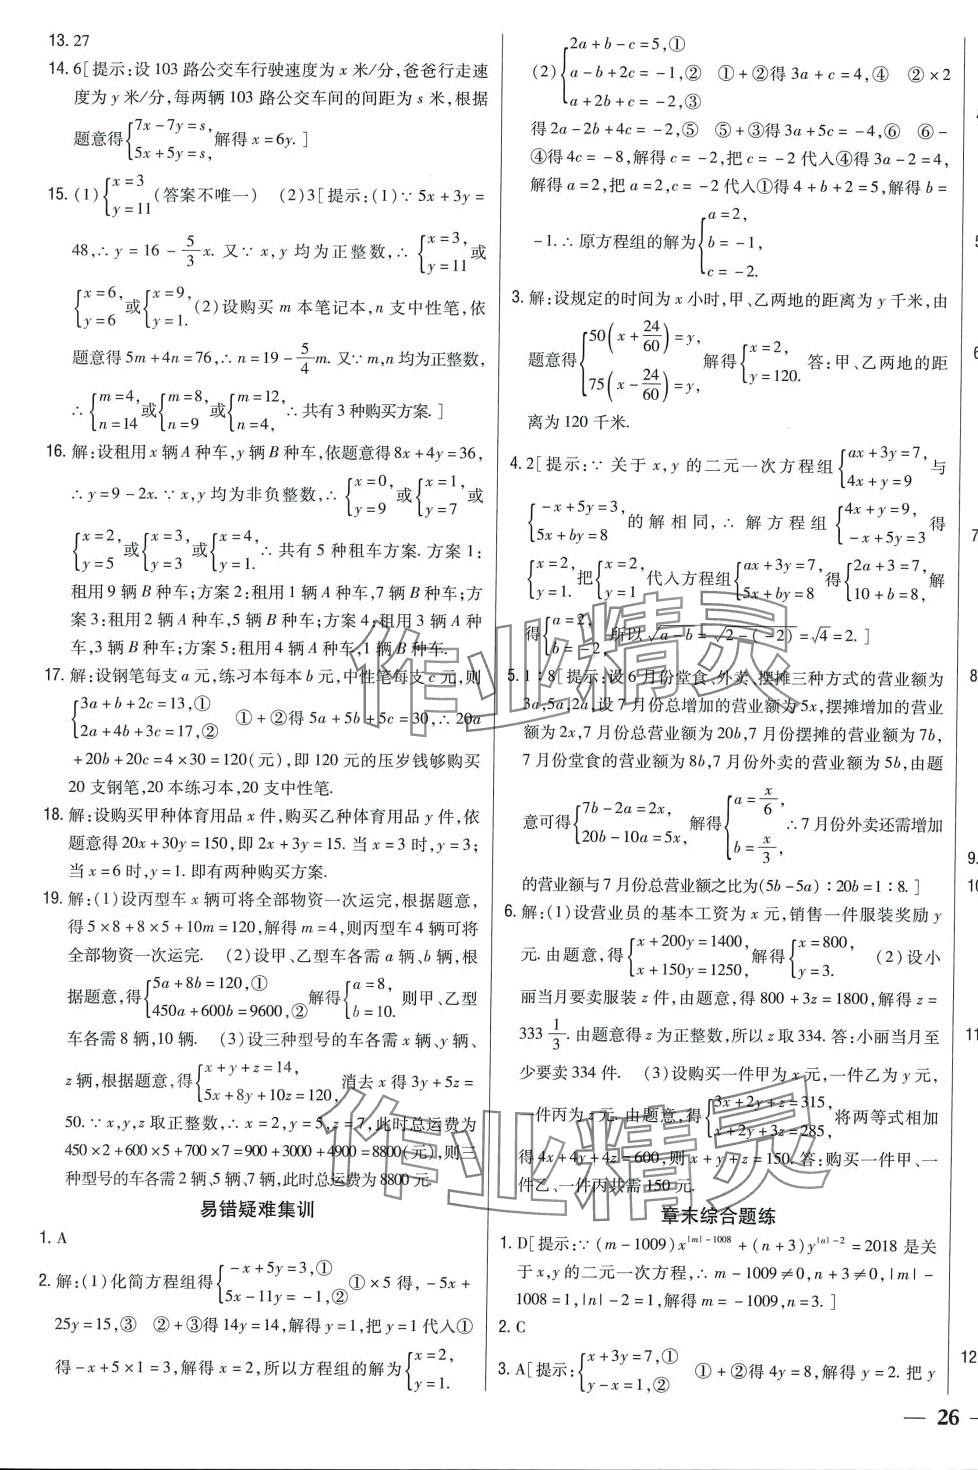 13. 27
14. 6[提示:设 103 路公交车行驶速度为 x 米/分,爸爸行走速
度为 y 米/分,每两辆 103 路公交车间的间距为 s 米,根据
题意得{7x-7y=s, 5x+5y=s, 解得 x=6y.]
15. (1){x=3 y=11 (答案不唯一) (2)3[提示:(1)∵5x+3y=
48,∴y=16-5/3x. 又∵x,y 均为正整数,∴{x=3, y=11 或
{x=6, y=6 或{x=9, y=1. (2)设购买 m 本笔记本,n 支中性笔,依
题意得 5m+4n=76,∴n=19-5/4m. 又∵m,n 均为正整数,
∴{m=4, n=14 或{m=8, n=9 或{m=12, n=4, ∴共有 3 种购买方案.]
16. 解:设租用 x 辆 A 种车,y 辆 B 种车,依题意得 8x+4y=36,
∴y=9-2x. ∵x,y 均为非负整数,∴{x=0, y=9 或{x=1, y=7 或
{x=2, y=5 或{x=3, y=3 或{x=4, y=1. ∴共有 5 种租车方案. 方案 1:
租用 9 辆 B 种车;方案 2:租用 1 辆 A 种车,7 辆 B 种车;方
案 3:租用 2 辆 A 种车,5 辆 B 种车;方案 4:租用 3 辆 A 种
车,3 辆 B 种车;方案 5:租用 4 辆 A 种车,1 辆 B 种车.
17. 解:设钢笔每支 a 元,练习本每本 b 元,中性笔每支 c 元,则
{3a+b+2c=13,① 2a+4b+3c=17,② ①+②得 5a+5b+5c=30,∴20a
+20b+20c=4×30=120(元),即 120 元的压岁钱够购买
20 支钢笔,20 本练习本,20 支中性笔.
18. 解:设购买甲种体育用品 x 件,购买乙种体育用品 y 件,依
题意得 20x+30y=150,即 2x+3y=15. 当 x=3 时,y=3;
当 x=6 时,y=1. 即有两种购买方案.
19. 解:(1)设丙型车 x 辆可将全部物资一次运完,根据题意,
得 5×8+8×5+10m=120,解得 m=4,则丙型车 4 辆可将
全部物资一次运完. (2)设甲、乙型车各需 a 辆、b 辆,根
据题意,得{5a+8b=120,① 450a+600b=9600,② 解得{a=8, b=10. 则甲、乙型
车各需 8 辆,10 辆. (3)设三种型号的车各需 x 辆、y 辆、
z 辆,根据题意,得{x+y+z=14, 5x+8y+10z=120, 消去 x 得 3y+5z=
50. ∵x,y,z 取正整数,∴x=2,y=5,z=7,此时总运费为
450×2+600×5+700×7=900+3000+4900=8800(元),则三
种型号的车各需 2 辆、5 辆、7 辆,此时总运费为 8800 元.
易错疑难集训
1. A
2. 解:(1)化简方程组得{-x+5y=3,① 5x-11y=-1,② ①×5 得,-5x+
25y=15,③ ②+③得 14y=14,解得 y=1,把 y=1 代入①
得-x+5×1=3,解得 x=2,所以方程组的解为{x=2, y=1.
(2){2a+b-c=5,① a-b+2c=-1,② a+2b+c=-2,③ ①+②得 3a+c=4,④ ②×2
得 2a-2b+4c=-2,⑤ ⑤+③得 3a+5c=-4,⑥ ⑥-
④得 4c=-8,解得 c=-2,把 c=-2 代入④得 3a-2=4,
解得 a=2,把 a=2,c=-2 代入①得 4+b+2=5,解得 b=
-1. ∴原方程组的解为{a=2, b=-1, c=-2.
3. 解:设规定的时间为 x 小时,甲、乙两地的距离为 y 千米,由
题意得{50(x+24/60)=y, 75(x-24/60)=y, 解得{x=2, y=120. 答:甲、乙两地的距
离为 120 千米.
4. 2[提示:∵关于 x,y 的二元一次方程组{ax+3y=7, 4x+y=9 与
{-x+5y=3, 5x+by=8 的解相同,∴解方程组{4x+y=9, -x+5y=3 得
{x=2, y=1. 把{x=2, y=1 代入方程组{ax+3y=7, 5x+by=8 得{2a+3=7, 10+b=8, 解
得{a=2, b=-2, 所以√a-b=√2-(-2)=√4=2.]
5. 1:8[提示:设 6 月份堂食、外卖、摆摊三种方式的营业额为
3a,5a,2a,设 7 月份总增加的营业额为 5x,摆摊增加的营业
额为 2x,7 月份总营业额为 20b,7 月份摆摊的营业额为 7b,
7 月份堂食的营业额为 8b,7 月份外卖的营业额为 5b,由题
意可得{7b-2a=2x, 20b-10a=5x, 解得{a=x/6, b=x/3, ∴7 月份外卖还需增加
的营业额与 7 月份总营业额之比为(5b-5a):20b=1:8.]
6. 解:(1)设营业员的基本工资为 x 元,销售一件服装奖励 y
元. 由题意,得{x+200y=1400, x+150y=1250, 解得{x=800, y=3. (2)设小
丽当月要卖服装 z 件,由题意,得 800+3z=1800,解得 z=
333 1/3. 由题意得 z 为正整数,所以 z 取 334. 答:小丽当月至
少要卖 334 件. (3)设购买一件甲为 x 元,一件乙为 y 元,
一件丙为 z 元. 由题意,得{3x+2y+z=315, x+2y+3z=285, 将两等式相加
得 4x+4y+4z=600,则 x+y+z=150. 答:购买一件甲、一
件乙、一件丙共需 150 元.
章末综合题练
1. D[提示:∵(m-1009)x^|m|-1008+(n+3)y^|n|-2=2018 是关
于 x,y 的二元一次方程,∴m-1009≠0,n+3≠0,|m|-
1008=1,|n|-2=1,解得 m=-1009,n=3.]
2. C
3. A[提示:{x+3y=7,① y-x=1,② ①+②得 4y=8,解得 y=2. 把 y
— 26 —
作业精灵
作业精灵
5
6
7
8
9.
10
11
12